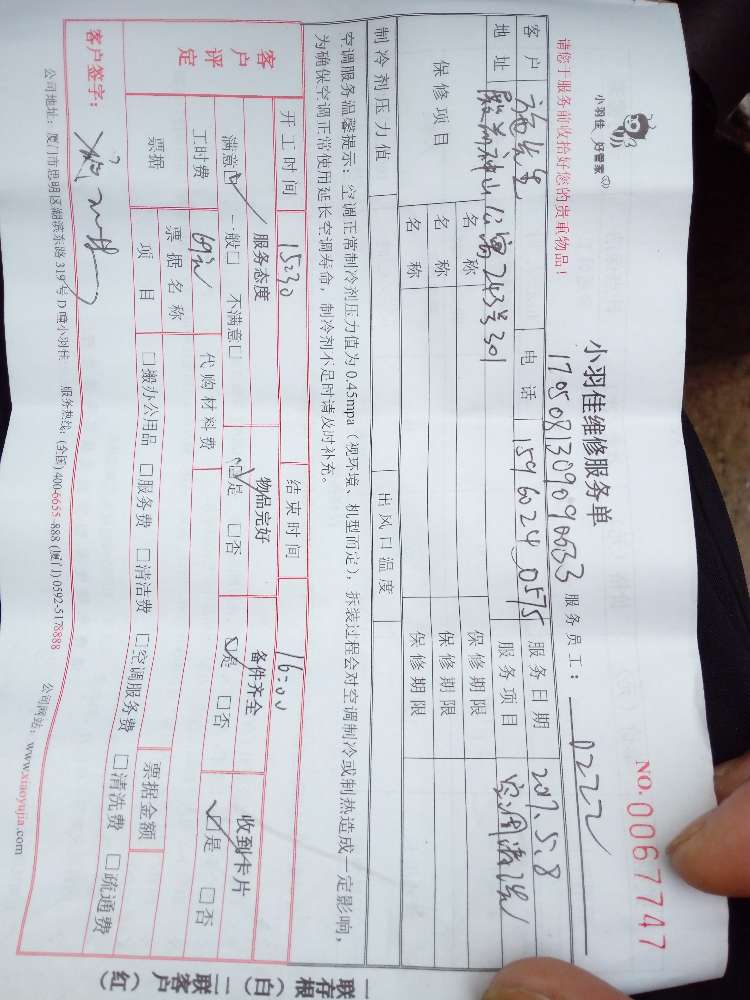 小羽佳 好管家
请您于服务前收拾好您的贵重物品!
小羽佳维修服务单
NO.0067747
1705081309090633 服务员工: 0222
客户 施先生 电话 15960240575 服务日期 2017.5.8
地址 殿前神山公寓243号301 服务项目 空调清洗
保修项目 名称 保修期限
名称 保修期限
名称 保修期限
制冷剂压力值 出风口温度
空调服务温馨提示: 空调正常制冷剂压力值为0.45mpa（视环境、机型而定），拆装过程会对空调制冷或制热造成一定影响，
为确保空调正常使用延长空调寿命，制冷剂不足时请及时补充。
开工时间 15:30 结束时间 16:00
客户评定 服务态度 物品完好 备件齐全 收到卡片
满意☑ 一般□ 不满意□ ☑是 □否 ☑是 □否 ☑是 □否
工时费 69元 代购材料费
票据 票据名称 票据金额
项目 □搬办公用品 □服务费 □清洁费 □空调服务费 □清洗费 □疏通费
客户签字:
公司地址: 厦门市思明区湖滨东路319号D幢小羽佳 服务热线: (全国)400-6655-888 (厦门)0592-5178888 公司网站: www.xiaoyujia.com
一联存根（白）二联客户（红）